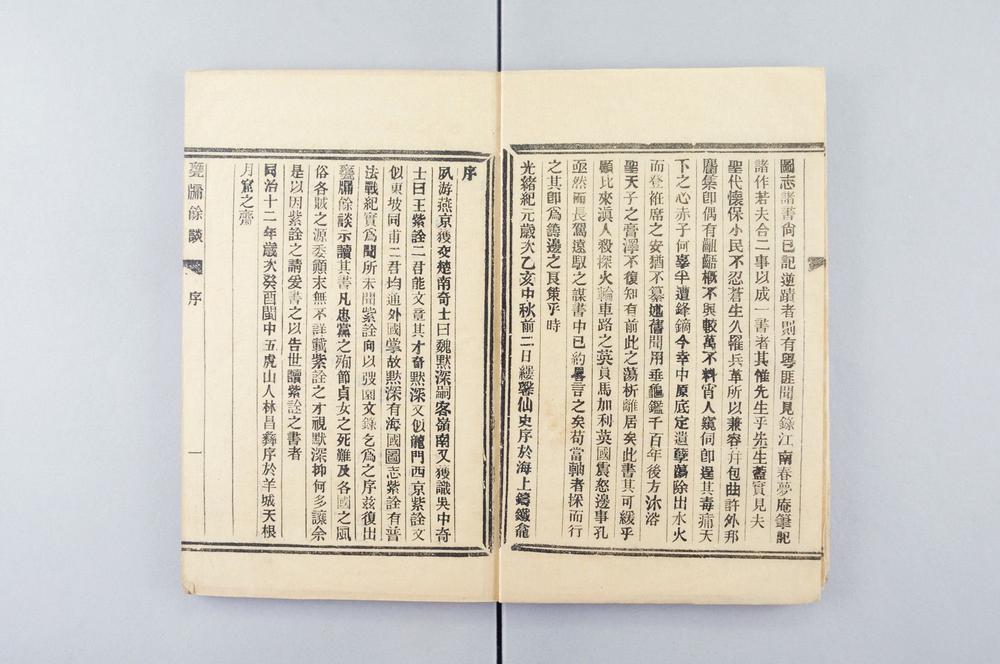 國志諸書尙已記逆蹟者則有粤匪聞見錄江南春夢庵筆記
諸作若夫合二事以成一書者其惟先生乎先生蓋實見夫
聖代懷保小民不忍蒼生久罹兵革所以兼容并包曲許外邦
屬集卽偶有齟齬概不與較萬不料宵人窺伺卽逞其毒痡天
下之心赤子何辜半遭鋒鏑今幸中原底定遺孽蕩除出水火
而登袵席之安猶不纂述舊聞用垂龜鑑千百年後方沐浴
聖天子之膏澤不復知有前此之蕩析離居矣此書其可緩乎
顧比來滇人殺探火輪車路之英員馬加利英國震怒邊事孔
亟然而長駕遠馭之謀書中已約畧言之矣苟當軸者採而行
之其卽爲籌邊之良策乎時
光緖紀元歲次乙亥中秋前二日縷馨仙史序於海上鑄鐵龕
序
夙游燕京獲交楚南奇士曰魏默深嗣客嶺南又獲識吳中奇
士曰王紫詮二君能文章其才奇默深文似龍門西京紫詮文
似東坡同甫二君均通外國掌故默深有海國圖志紫詮有普
法戰紀實爲聞所未聞紫詮向以弢園文錄乞爲之序茲復出
甕牖餘談示讀其書凡忠黨之殉節貞女之死難及各國之風
俗各賊之源委顚末無不詳載紫詮之才視默深抑何多讓余
是以因紫詮之請爰書之以告世讀紫詮之書者
同治十二年歲次癸酉閩中五虎山人林昌彝序於羊城天根
月窟之齋
甕牖餘談
序
一